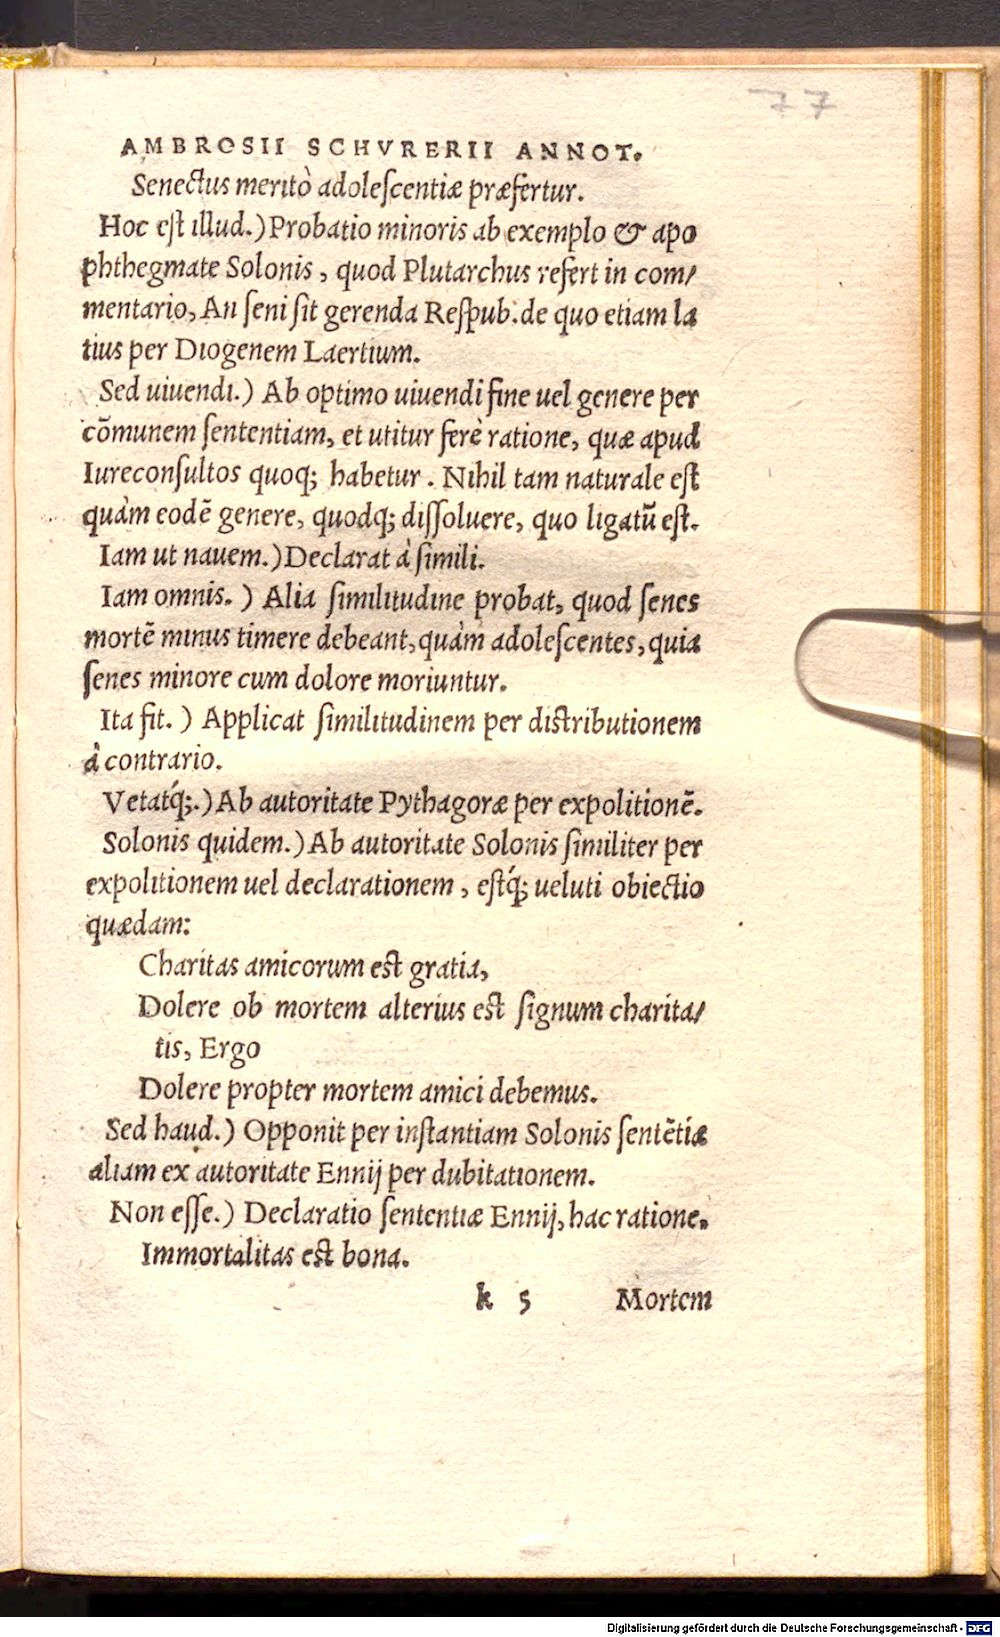 77
AMBROSII SCHVRERII ANNOT.
Senectus meritò adolescentiæ præfertur.
Hoc est illud.) Probatio minoris ab exemplo & apo
phthegmate Solonis, quod Plutarchus refert in com/
mentario, An seni sit gerenda Respub. de quo etiam la
tius per Diogenem Laertium.
Sed uiuendi.) Ab optimo uiuendi fine uel genere per
cōmunem sententiam, et utitur ferè ratione, quæ apud
Iureconsultos quoq; habetur. Nihil tam naturale est
quàm eodē genere, quodq; dissoluere, quo ligatū est.
Iam ut nauem.) Declarat à simili.
Iam omnis.) Alia similitudine probat, quod senes
mortē minus timere debeant, quàm adolescentes, quia
senes minore cum dolore moriuntur.
Ita fit.) Applicat similitudinem per distributionem
à contrario.
Vetatq́;.) Ab autoritate Pythagoræ per expolitionē.
Solonis quidem.) Ab autoritate Solonis similiter per
expolitionem uel declarationem, estq́; ueluti obiectio
quædam:
Charitas amicorum est gratia,
Dolere ob mortem alterius est signum charita/
tis, Ergo
Dolere propter mortem amici debemus.
Sed haud.) Opponit per instantiam Solonis sentētiæ
aliam ex autoritate Ennij per dubitationem.
Non esse.) Declaratio sententiæ Ennij, hac ratione.
Immortalitas est bona.
k 5 Mortem
Digitalisierung gefördert durch die Deutsche Forschungsgemeinschaft - DFG